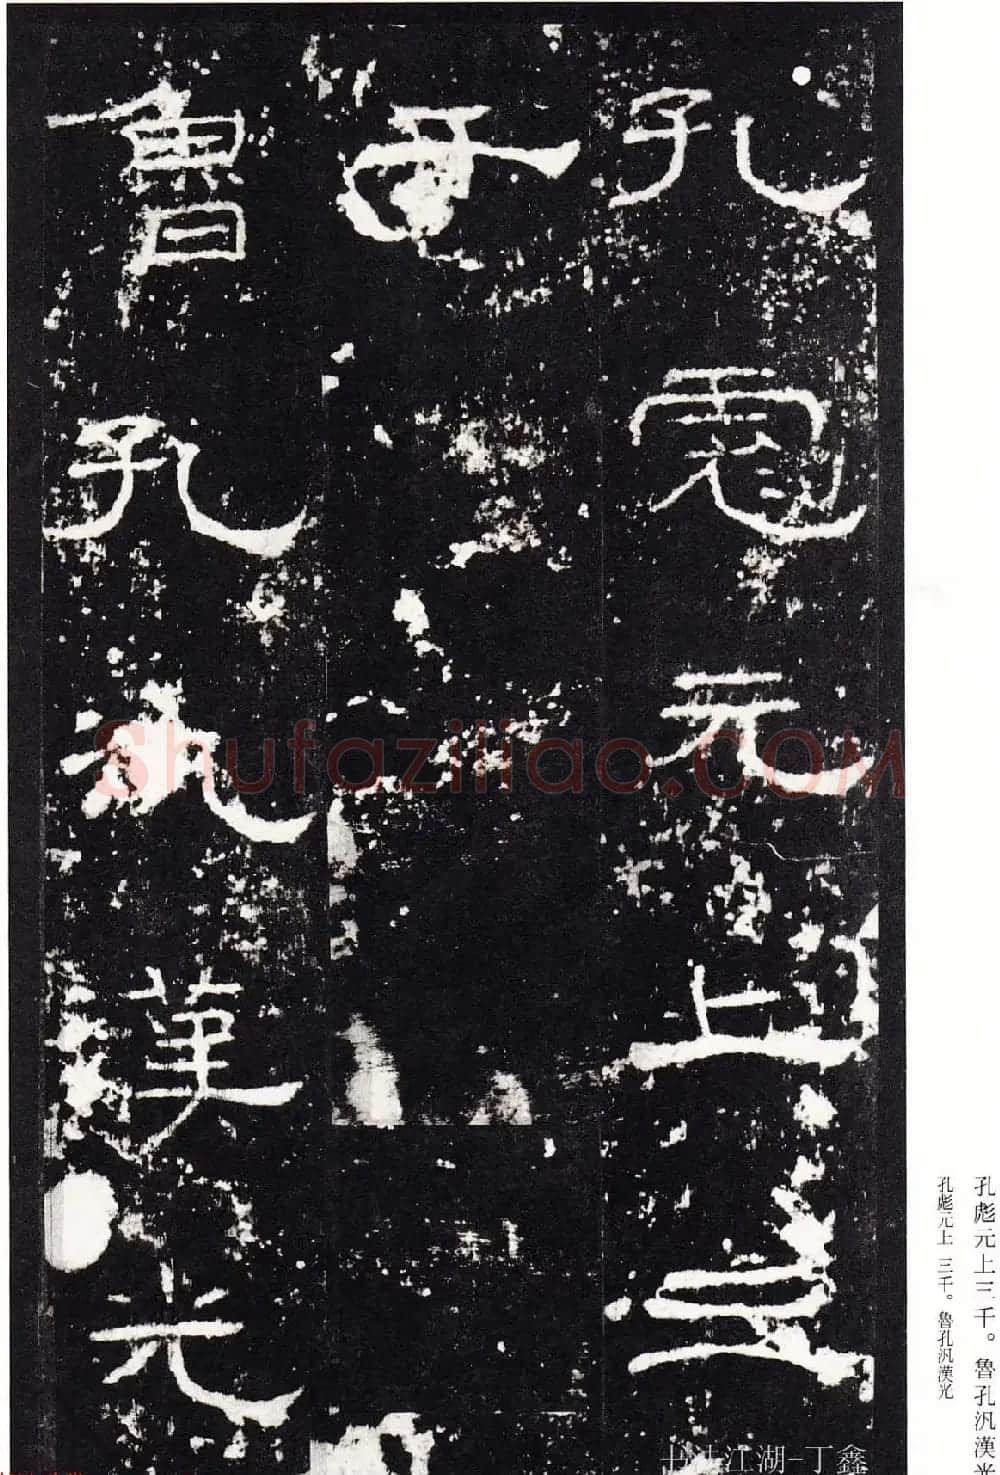 孔彪元上三
千
魯孔汎漢光
孔彪元上三千。魯孔汎漢光
孔彪元上 三千。魯孔汎漢光
Shufaziliao.COM
书法江湖-丁鑫